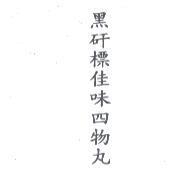 黑矸標佳味四物丸